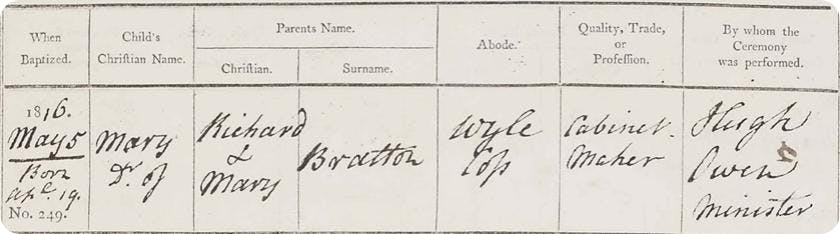 When Baptized.
Child's Christian Name.
Parents Name.
Christian.
Surname.
Abode.
Quality, Trade, or Profession.
By whom the Ceremony was performed.
1816.
May 5
Born
Apl. 19.
No. 249.
Mary
Dr. of
Richard
&
Mary
Bratton
Wyle
Cop
Cabinet-
Maker
Hugh
Owen
Minister